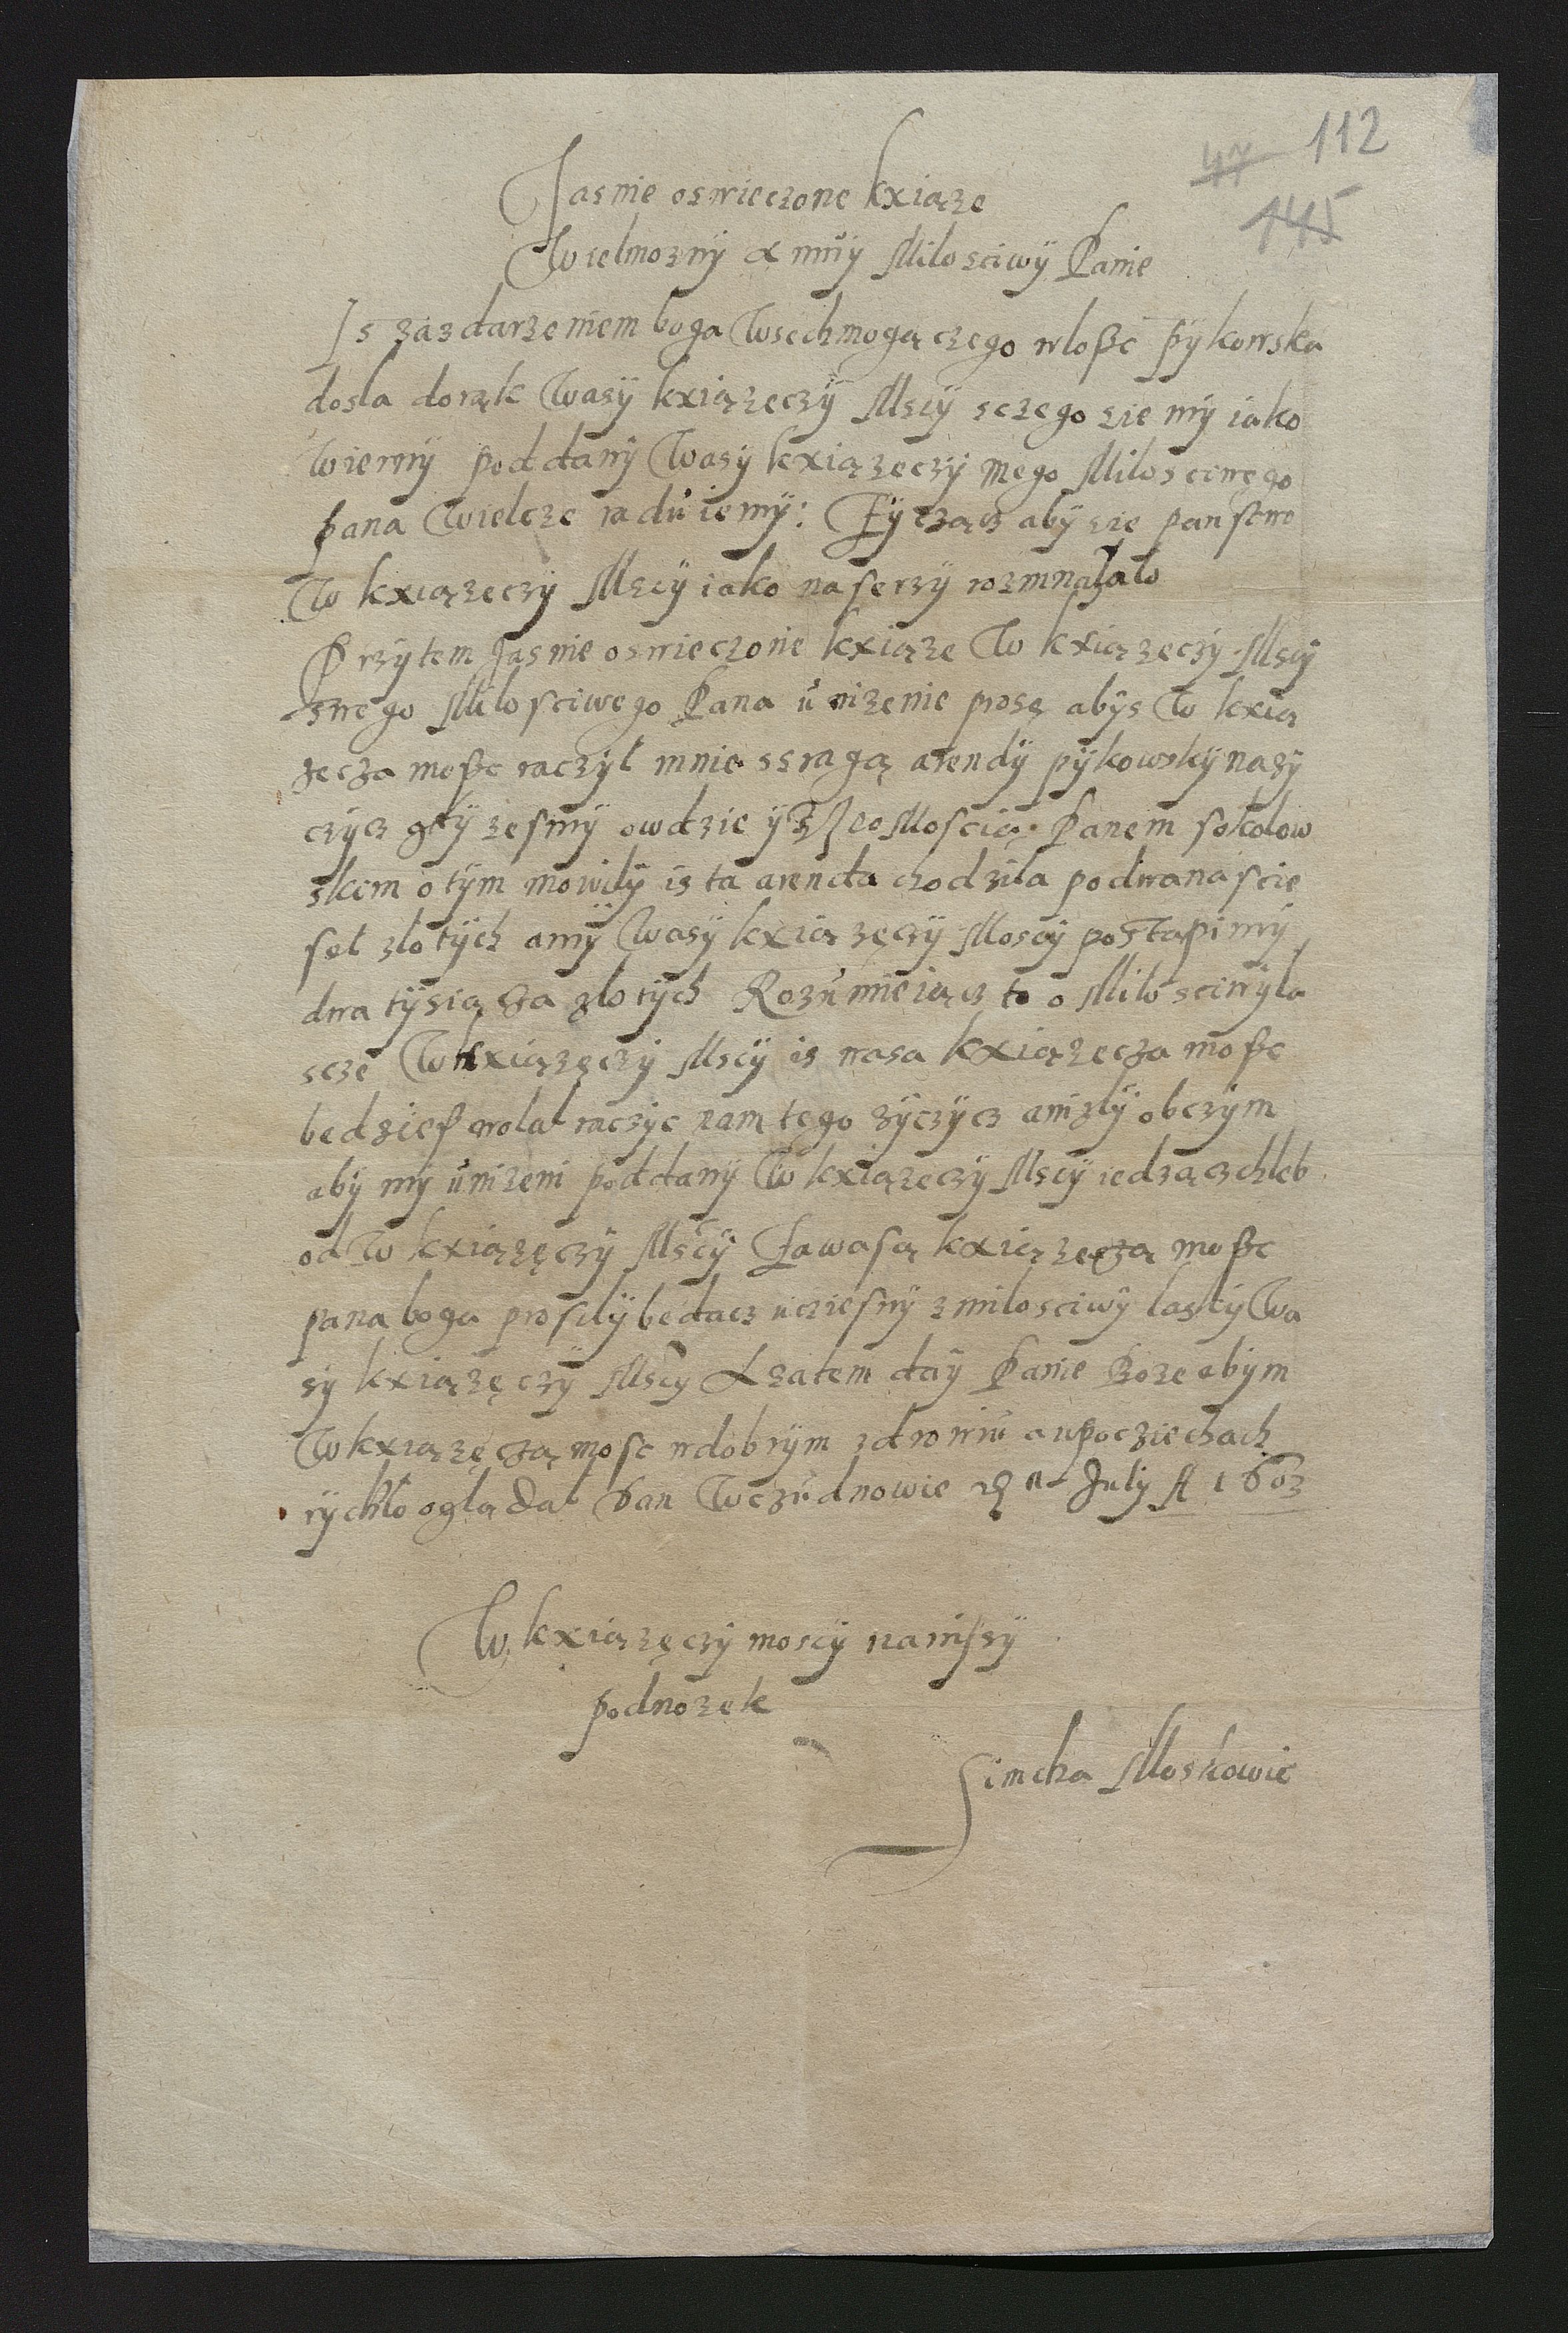 112
47
145
Jasnie oswieczone kxiąze
Wielmozny a mnÿ Milosciwÿ Panie
Js zazdarzeniem boga Wsechmogączego wlosc pÿkowska
dosla dorąk Wasÿ kxiązeczÿ Msczÿ sczego sie mÿ iako
wiernÿ poddanÿ Wasÿ kxiązeczÿ mego Milosciwego
pana Wielcze raduiemÿ: Zÿcząz abÿ sie panstwo
W kxiązeczÿ Mscÿ iako naserzÿ rozmnazalo
Przÿtem Jasnie oswieczonie kxiąze W kxiązeczÿ Mscÿ
swego Milosciwego Pana unizenie proszę abÿs W kxią
zecza mosc raczÿl mnie ssvagą arendÿ pÿkowskÿ nazÿ
czÿcz gdÿ zesmÿ owdzie ÿ z Jeo Moscią Panem sokolow
skem o tÿm mowilÿ is ta arenda chodzila podwanascie
set zlotÿch amÿ Wasÿ kxiązęczÿ Moscÿ postapimÿ
dwa tÿsiącza zlotÿch Rozumieiącz to o Milosciwÿ la
scze W kxiązęczÿ Mscÿ is wasa kxiązecza mosc
bedzies wolal raczÿc nam tego zÿczÿcz anizlÿ obczÿm
abÿ mÿ unizeni poddanÿ W kxiązeczÿ Mscÿ iedzącz chleb
od W kxiązęczÿ Mscÿ Zawasą kxiązeczą mosc
pana boga prosilÿ bedacz ucziesnÿ z milosciwÿ laskÿ Wa
sÿ kxiązęczÿ Mscÿ A zatem daÿ Panie Boze abÿm
W kxiązęczą mosc wdobrÿm zdrowiu a wpocziechach
rÿchlo oglądal Dan Wczudnowie July A 1603
W kxiązęczÿ moscÿ nanissÿ
podnozek
Simcha Moskowic